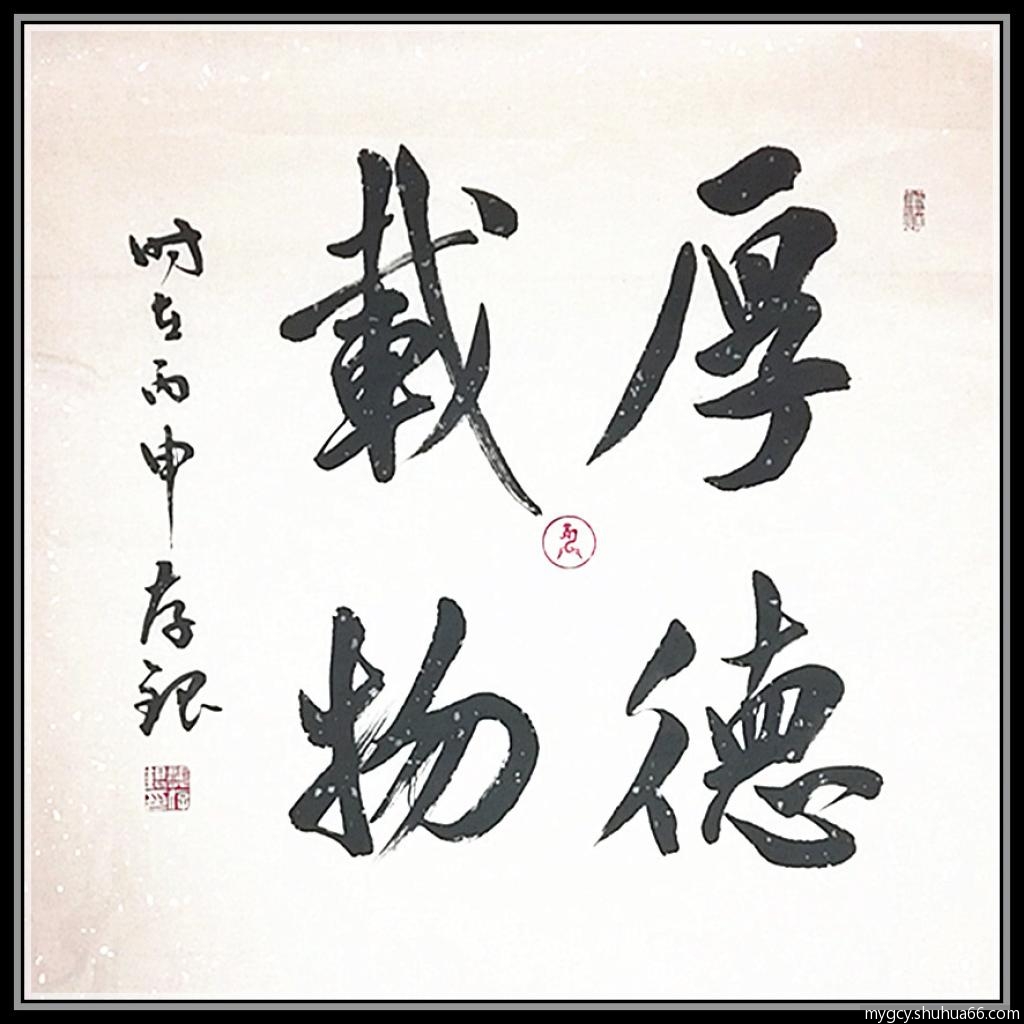 厚德
載物
時在丙申存銀
mygcy.shuhua66.com